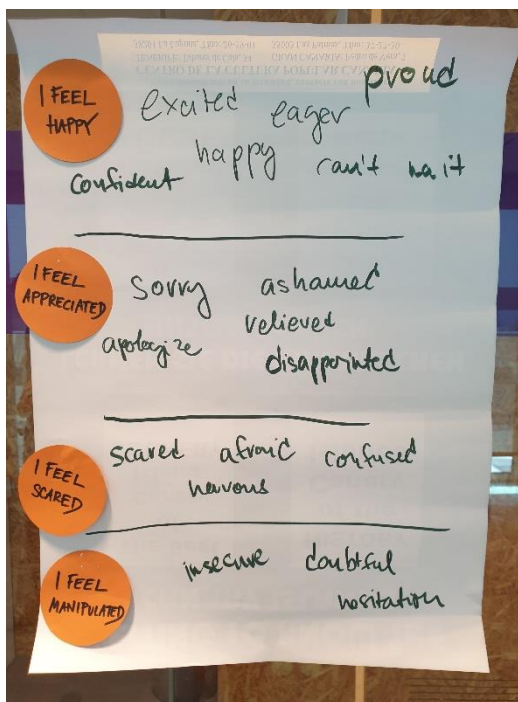 proud
I FEEL
HAPPY
excited eager
happy can't wait
confident
I FEEL
APPRECIATED
sorry ashamed
relieved
apologize
disappointed
I FEEL
SCARED
scared afraid confused
nervous
I FEEL
MANIPULATED
insecure doubtful
hesitation